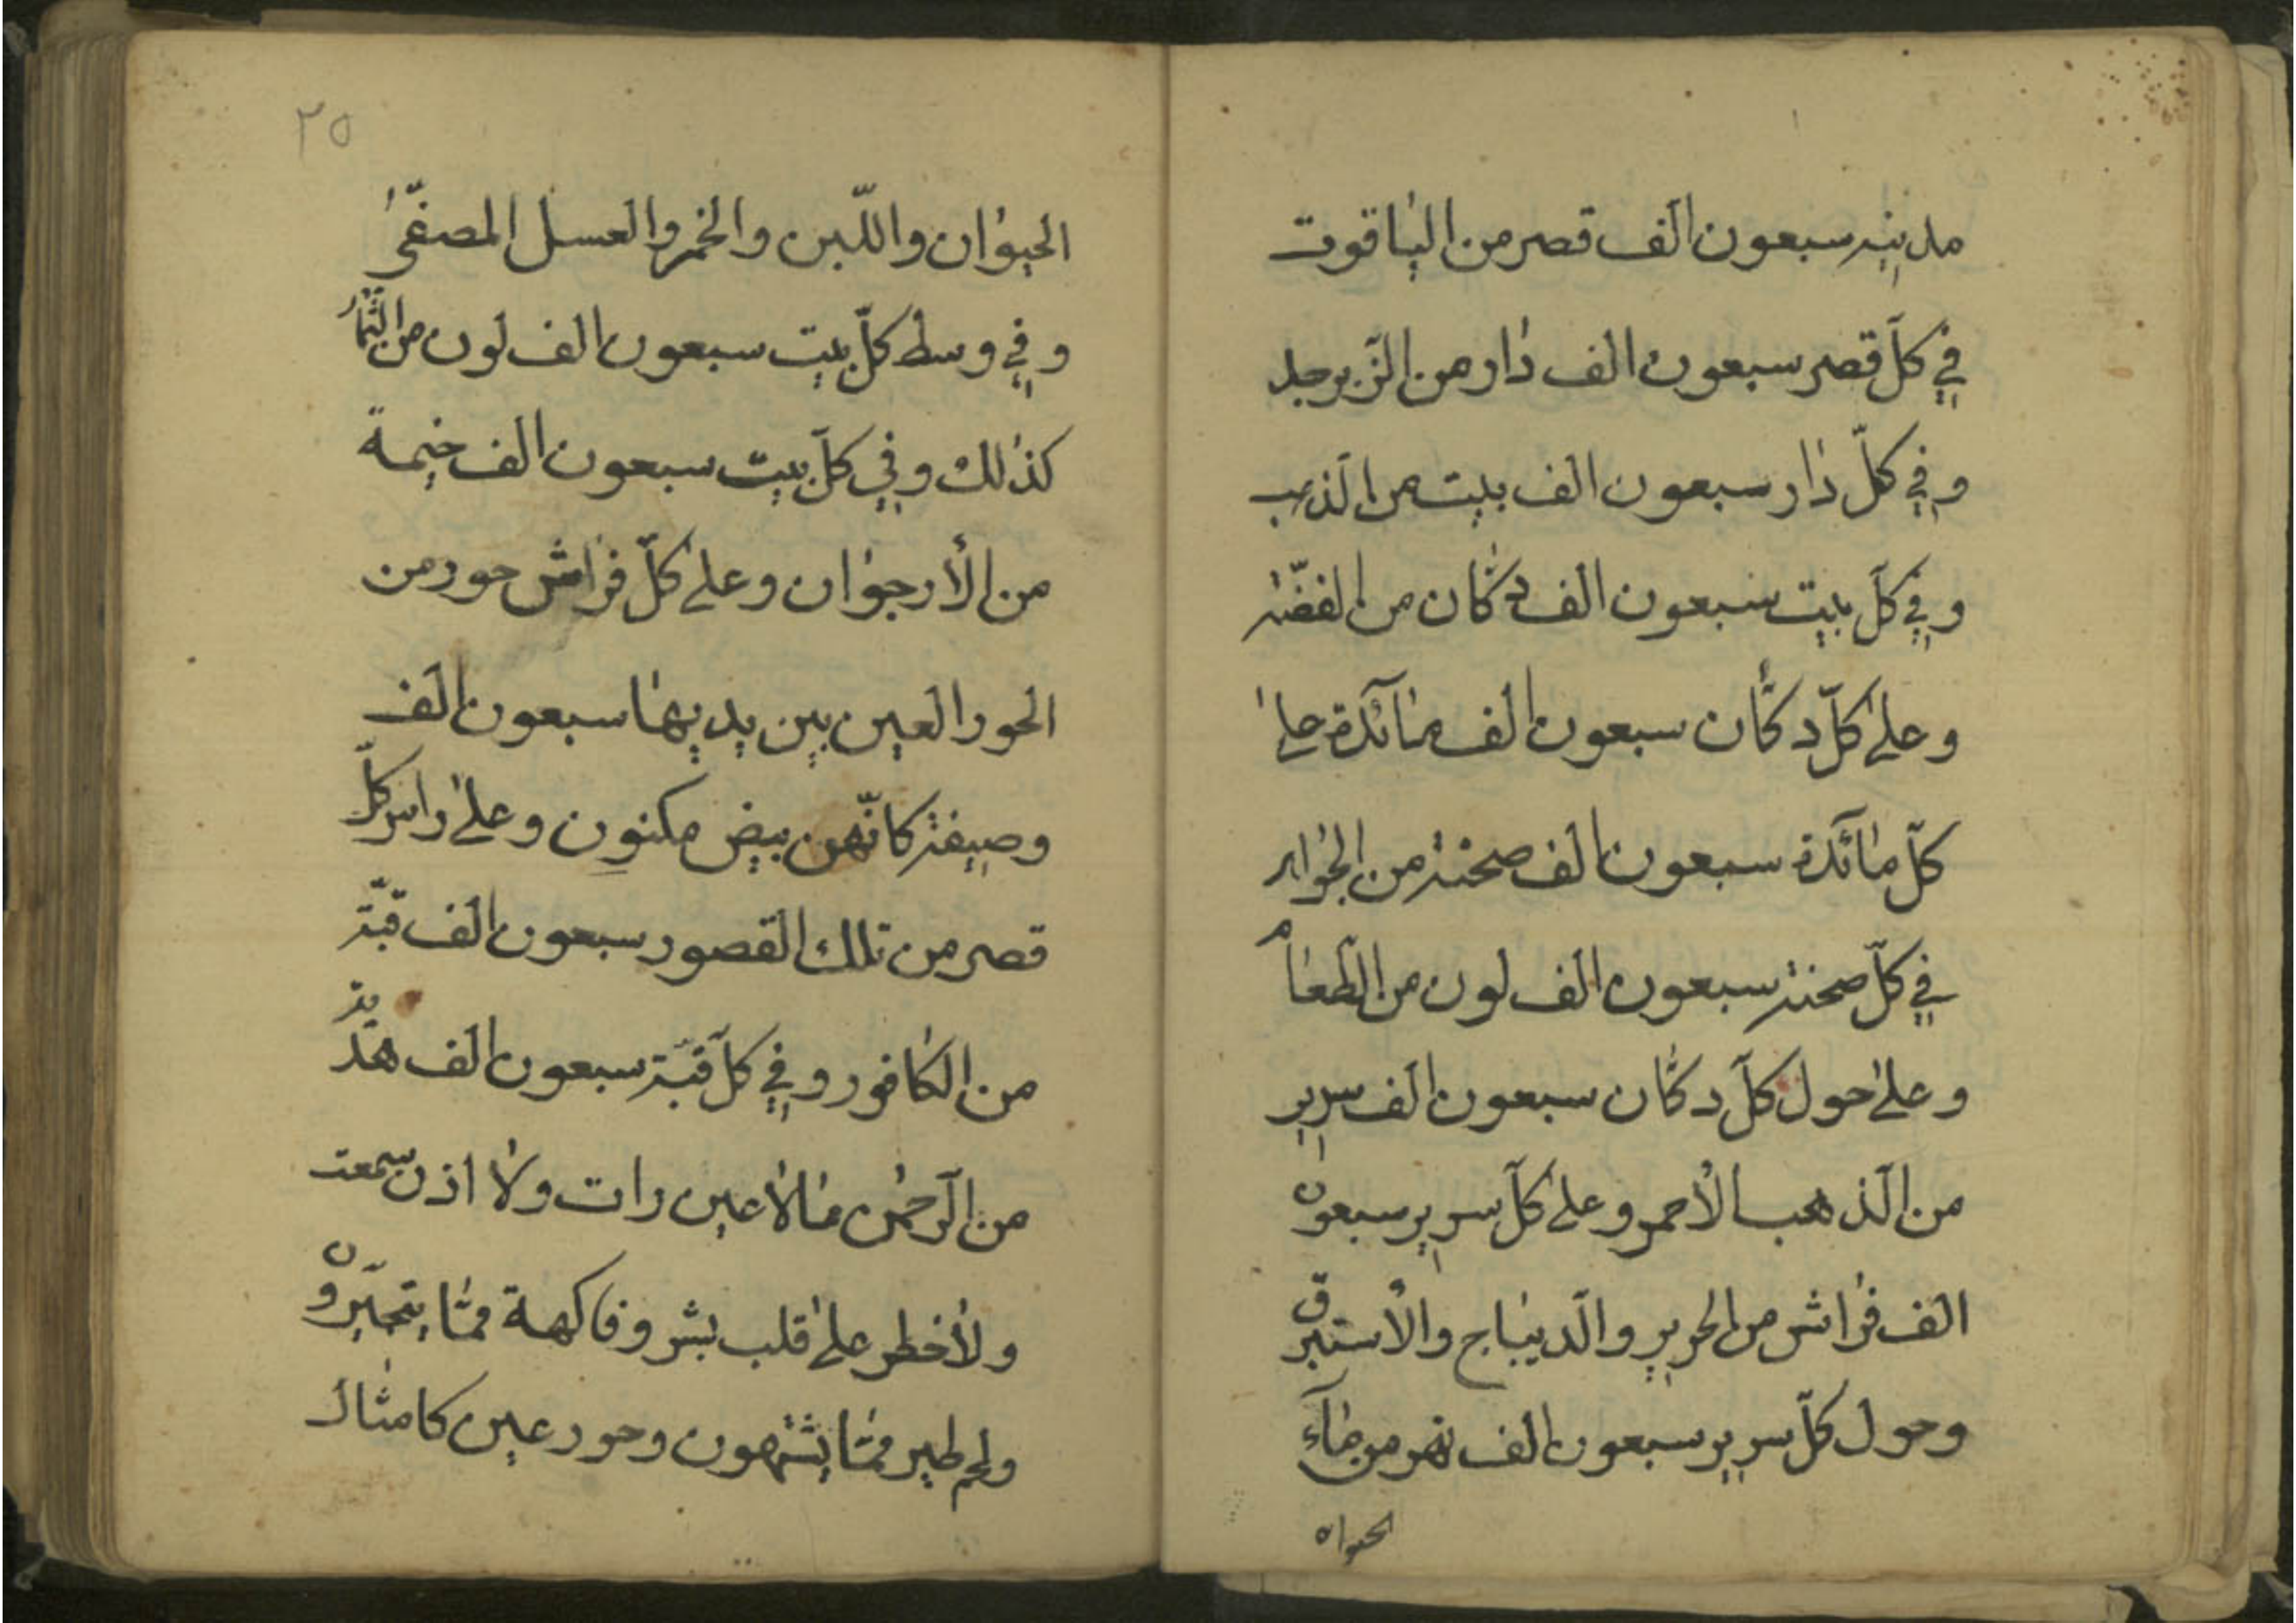 مدينة سبعون الف قصر من الياقوت
في كلّ قصر سبعون الف دار من الزّبرجد
وفي كلّ دار سبعون الف بيت من الذهب
وفي كلّ بيت سبعون الف دكان من الفضّة
وعلى كلّ دكّان سبعون الف مائدة على
كلّ مائدة سبعون الف صحنة من الجواهر
في كلّ صحنة سبعون الف لون من الطّعام
وعلى حول كلّ دكّان سبعون الف سرير
من الذّهب الأحمر وعلى كلّ سرير سبعون
الف فراش من الحرير والدّيباج والأستبرق
وحول كلّ سرير سبعون الف نهر من مآء
الحيوان
٢٥
الحيوان واللّبن والخمر والعسل المصفّى
وفي وسط كلّ بيت سبعون الف لون من الثّمار
كذلك وفي كلّ بيت سبعون الف خيمة
من الأرجوان وعلى كلّ فراش حور من
الحور العين بين يديها سبعون الف
وصيفة كانّهن بيض مكنون وعلى راس كلّ
قصر من تلك القصور سبعون الف قبّة
من الكافور وفي كلّ قبّة سبعون الف هديّة
من الرّحمن ما لا عين رات ولا اذن سمعت
ولا خطر على قلب بشر وفاكهة ممّا يتخيّرون
ولحم طير ممّا يشتهون وحور عين كامثال